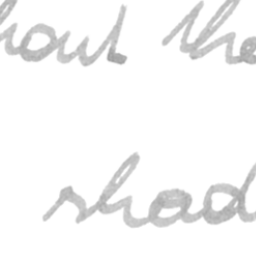 hout the
shad